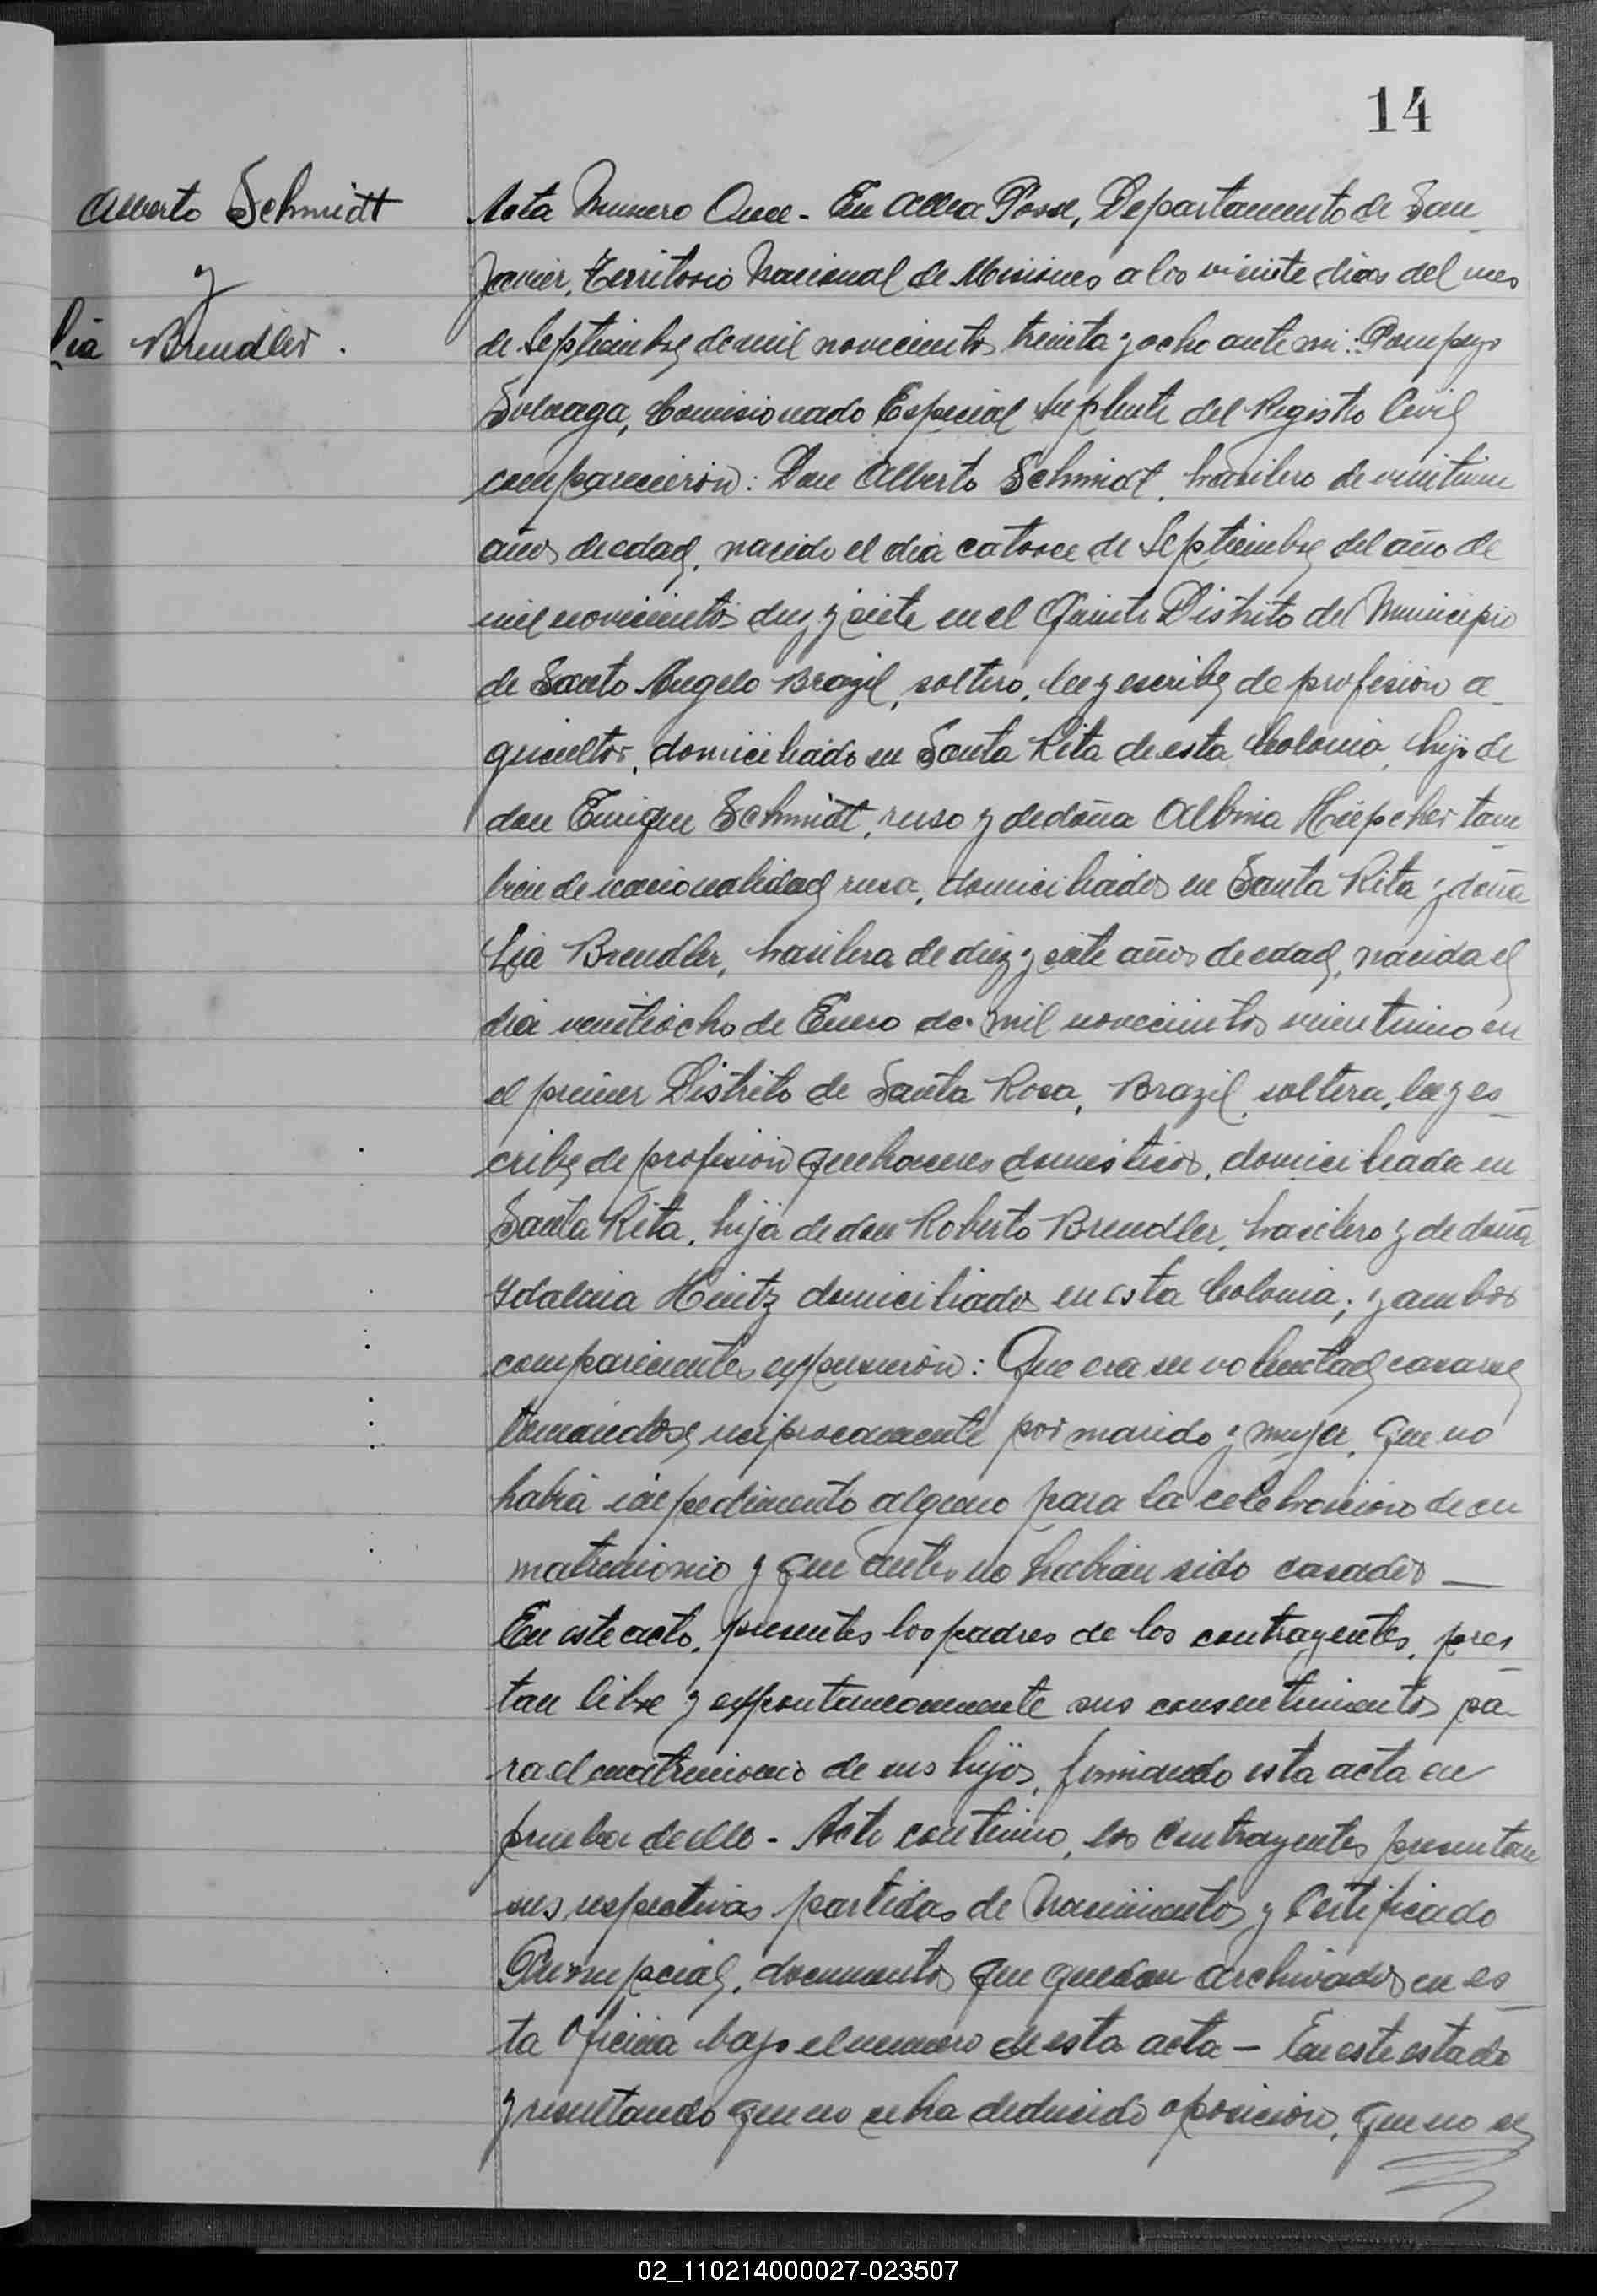 14
Alberto Schmidt
y
Lia Brendler.
Acta Numero Once - En Alba Posse, Departamento de San
Javier, Territorio Nacional de Misiones a los viente dias del mes
de Septiembre de mil novecientos treinta y ocho ante mi: Pompeyo
Solvaga, Comisionado Especial Suplente del Registro Civil
comparecieron: Don Alberto Schmidt, brasilero de veintiun
años de edad, nacido el dia catorce de Septiembre del año de
mil novecientos diez y siete en el Quinto Distrito del Municipio
de Santo Angelo Brazil, soltero, lee y escribe de profesión a-
gricultor, domiciliado en Santa Rita de esta Colonia, hijo de
don Enrique Schmidt, ruso y de doña Albina Hüpcher tam-
bien de nacionalidad rusa, domiciliados en Santa Rita y doña
Lia Brendler, brasilera de diez y siete años de edad, nacida el
dia ventiocho de Enero de mil novecientos veintiuno en
el primer Distrito de Santa Rosa, Brazil, soltera, lee y es-
cribe de profesión quehaceres domesticos, domiciliada en
Santa Rita, hija de don Roberto Brendler, brasilero y de doña
Ydalina Heintz domiciliados en esta Colonia; y ambos
comparecientes expusieron: Que era su voluntad casarse
tomandose reciprocamente por marido y mujer, que no
habia impedimento alguno para la celebracion de su
matrimonio y que antes no habian sido casados —
En este acto, presentes los padres de los contrayentes, pres-
tan libre y expontaneamente sus consentimientos pa-
ra el matrimonio de sus hijos, firmando esta acta en
prueba de ello - Acto continuo, los contrayentes presentan
sus respectivas partidas de Nacimientos y Certificado
Prenupcial, documentos que quedan archivados en es-
ta Oficina bajo el numero de esta acta - En este estado
y resultando que no se ha deducido oposicion, que no se
02_110214000027-023507